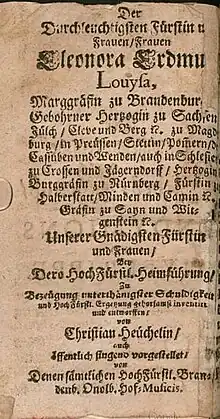 Der
Durchleuchtigsten Fürstin u
Frauen/Frauen
Eleonora Erdmu
Louysa,
Marggräfin zu Brandenbur
Gebohrner Hertzogin zu Sachsen
Jülch / Cleve und Berg ꝛc. zu Mag
burg / in Preüssen / Stettin / Pom̃ern / d
Cassuben und Wenden / auch in Schlesie
zu Crossen und Jägerndorff / Hertzogin
Burggräfin zu Nürnberg / Fürstin
Halberstatt / Minden und Camin ꝛc.
Gräfin zu Sayn und Wit-
genstein ꝛc.
Unserer Gnädigsten Fürstin
und Frauen /
Bey
Dero HochFürstl. Heimführung /
Zu
Bezeügung unterthänigster Schuldigkeit
und HochFürstl. Ergetzung gehorsamst inventirt
und entworffen /
von
Christian Heüchelin /
auch
öffentlich singend vorgestellet /
von
Denen sämtlichen HochFürstl. Bran
denb. Onolb. Hof-Musicis.